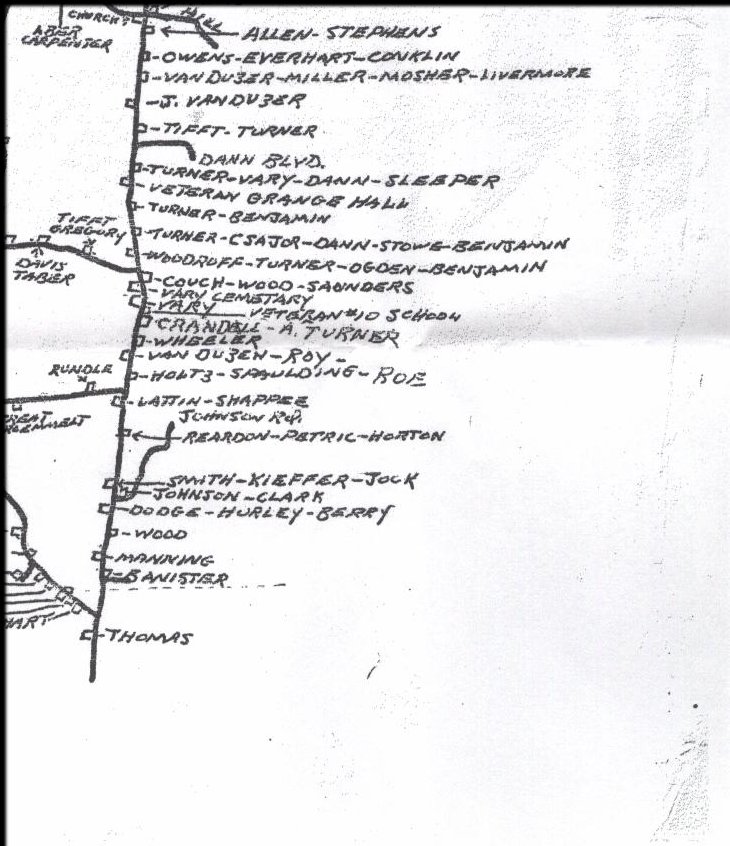 CHURCH?
HILL
ABER
CARPENTER
ALLEN-STEPHENS
OWENS-EVERHART-CONKLIN
VAN DUZER-MILLER-MOSHER-LIVERMORE
J. VAN DUZER
TIFFT-TURNER
DANN BLVD.
TURNER-VARY-DANN-SLEEPER
VETERAN GRANGE HALL
TURNER-BENJAMIN
TIFFT
GREGORY
TURNER-CSAJOR-DANN-STOWE-BENJAMIN
DAVIS
TABER
WOODRUFF-TURNER-OGDEN-BENJAMIN
COUCH-WOOD-SAUNDERS
VARY CEMETARY
VARY
VETERAN #10 SCHOOL
CRANDELL-A. TURNER
WHEELER
VAN DUZEN-ROY-
RUNDLE
HOLTZ-SPAULDING-ROE
LATTIN-SHAPPEE
JOHNSON RD.
REARDON-PETRIC-HORTON
SMITH-KIEFFER-JOCK
JOHNSON-CLARK
DODGE-HURLEY-BERRY
WOOD
MANNING
BANISTER
HART
THOMAS